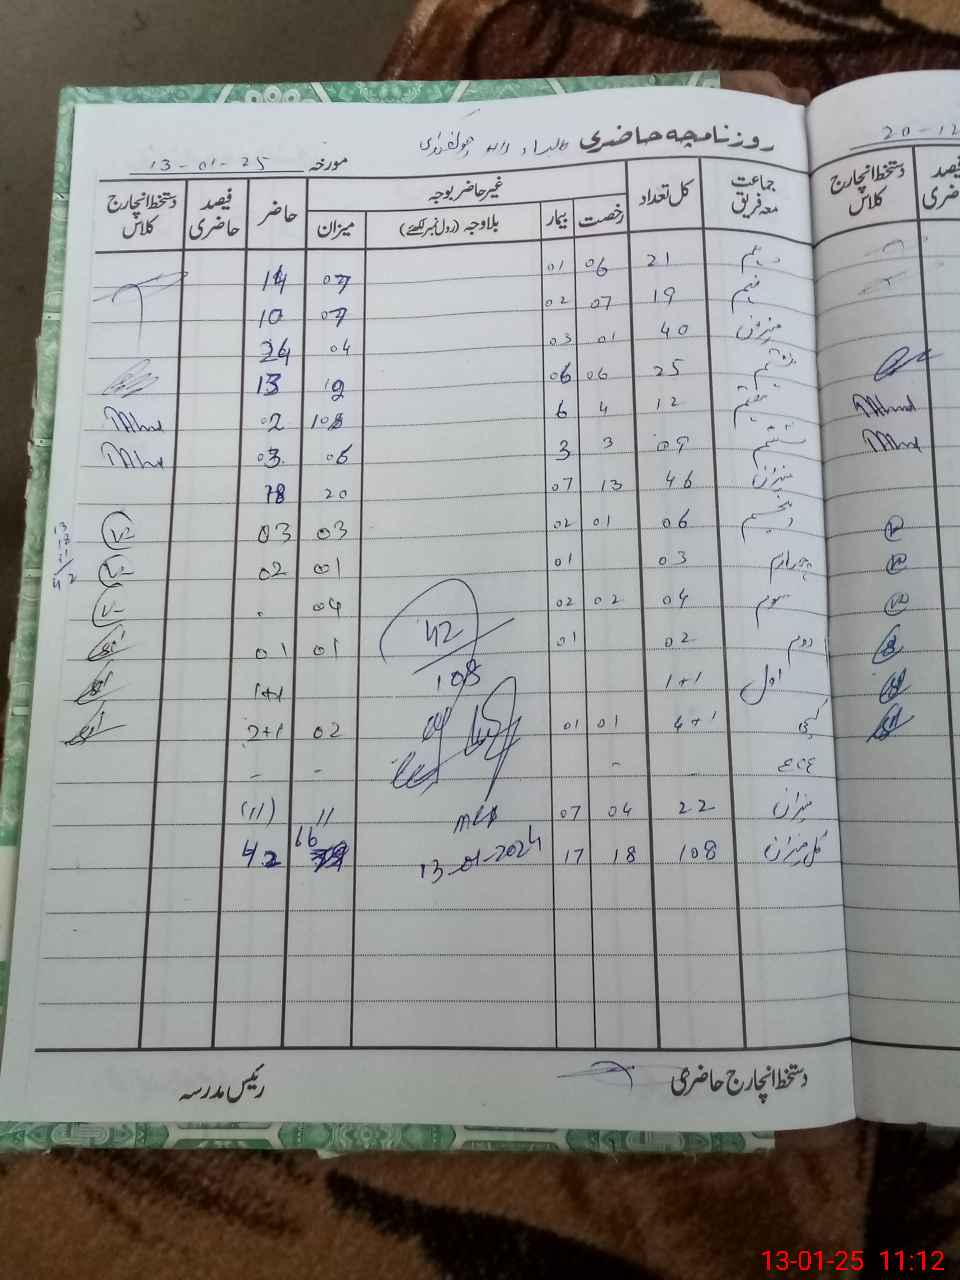 روزنامچہ حاضری
مورخہ 13-01-25
جماعت معہ فریق | کل تعداد | غیر حاضر بوجہ | حاضر | فیصد حاضری | دستخط انچارج کلاس
رخصت | بیمار | بلاوجہ (رول نمبر لکھئے) | میزان
دہم 21 06 01 14
نہم 19 07 02 10
میزان 40 01 03 04
ہشتم 25 06 06 13
ہفتم 12 4 6 02
ششم 09 3 3 06 03
میزان 46 13 07 20 18
پنجم 06 01 02 03 03
چہارم 03 01 01 02
سوم 04 02 02 04
دوم 02 01 01 01
اول 1+1 1+1
کچی 4+1 01 01 02 2+1
میزان 22 04 07 11 (11)
کل میزان 108 18 17 66 42
42
108
13-01-2024
دستخط انچارج حاضری
رئیس مدرسہ
20-12
فیصد حاضری
دستخط انچارج کلاس
13-01-25 11:12